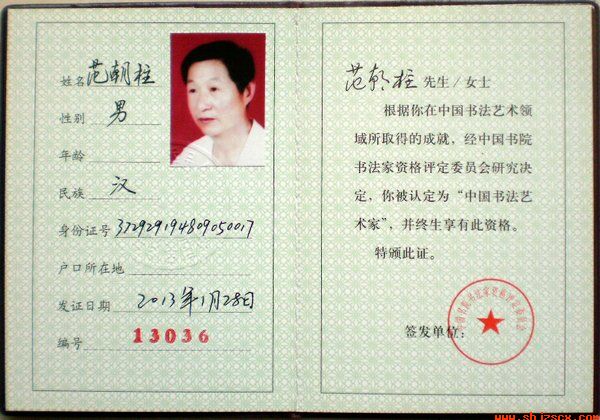 姓名 范朝柱
性别 男
年龄
民族 汉
身份证号 372929194809050017
户口所在地
发证日期 2013年1月28日
编号 13036
范朝柱 先生/女士
根据你在中国书法艺术领
域所取得的成就，经中国书院
书法家资格评定委员会研究决
定，你被认定为“中国书法艺
术家”，并终生享有此资格。
特颁此证。
签发单位：
中国书院书法家资格评定委员会
www.shjzscx.com